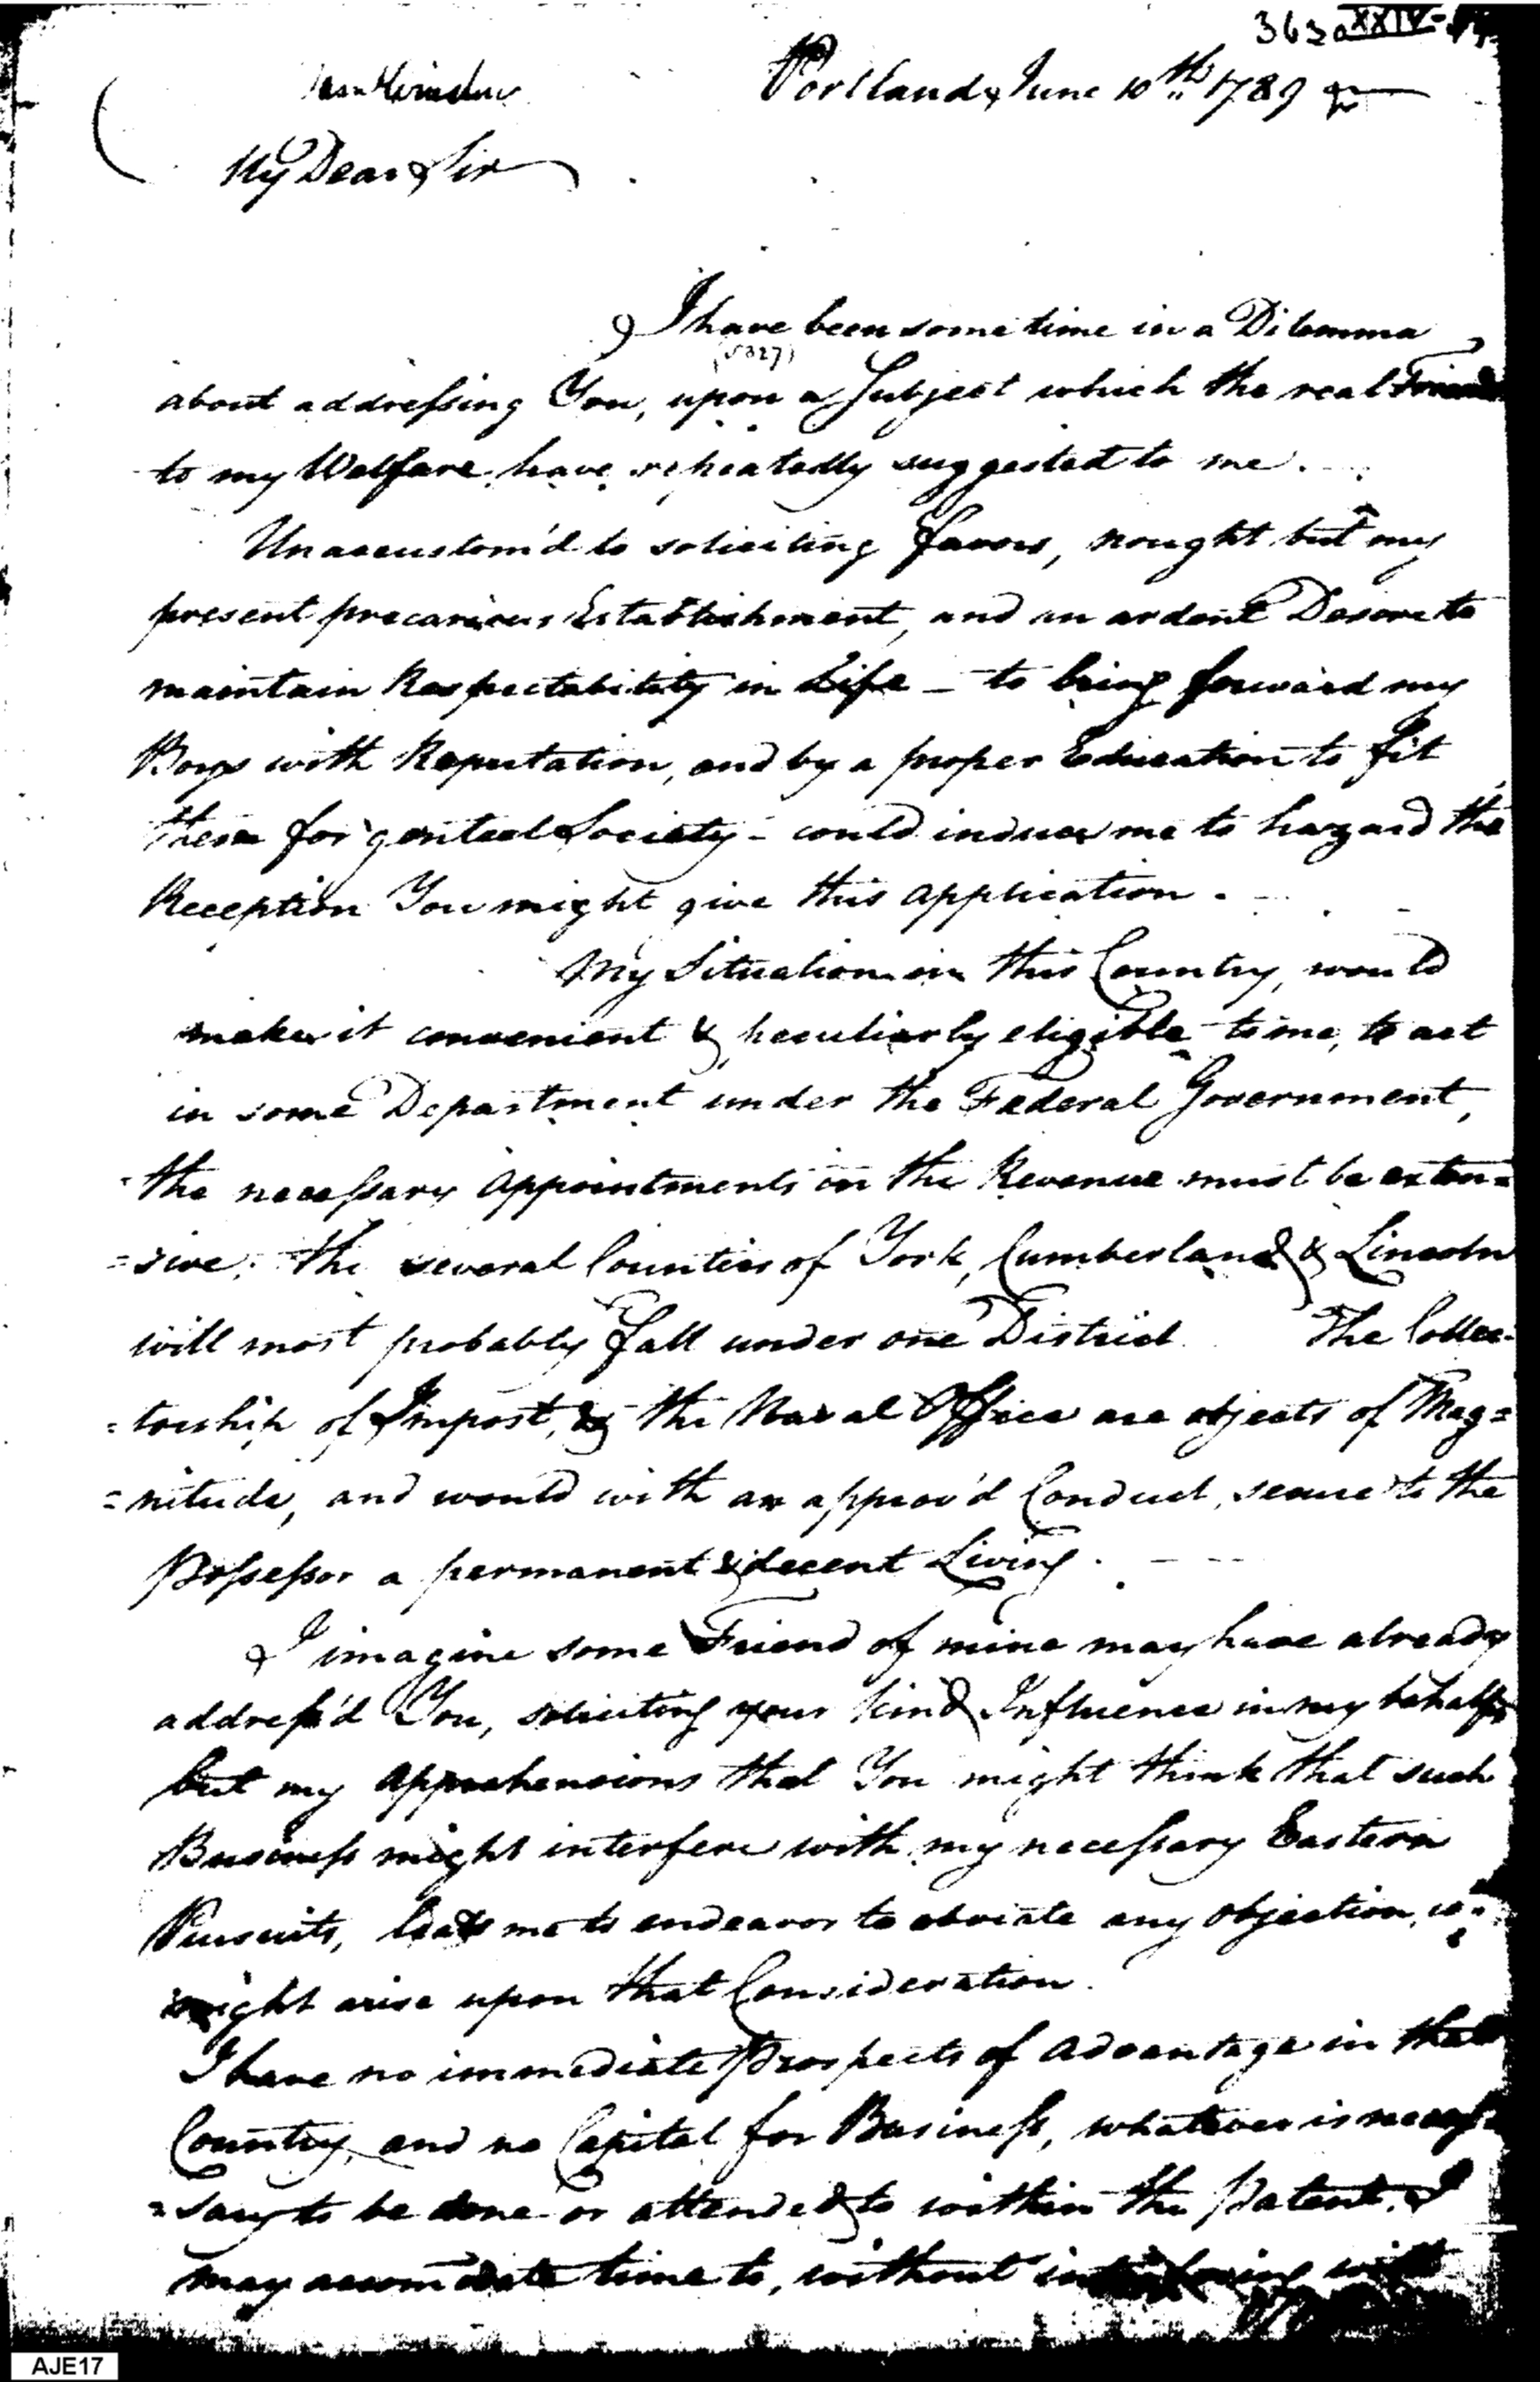 363a XXIV-
Portland June 10th 1789
Sam Winslow
My Dear Sir
I have been some time in a Dilemma
(5327)
about addressing You, upon a Subject which the real Friends
to my Welfare have repeatedly suggested to me.
Unaccustom'd to soliciting favors, nought but my
present precarious Establishment, and an ardent Desire to
maintain Respectability in Life - to bring forward my
Boys with Reputation, and by a proper Education to fit
them for genteel Society - could induce me to hazard the
Reception You might give this application.
My Situation in this Country, would
make it convenient & peculiarly eligible to me, to act
in some Department under the Federal Government,
the necessary appointments in the Revenue must be exten=
=sive; the several Counties of York, Cumberland & Lincoln
will most probably fall under one District The Collec=
=torship of Impost, & the Naval Office are objects of Mag=
=nitude, and would with an approv'd Conduct, secure to the
Possessor a permanent & decent Living.
I imagine some Friend of mine may have already
address'd You, soliciting your kind Influence in my behalf,
but my apprehensions that You might think that such
Business might interfere with my necessary Eastern
Pursuits, leads me to endeavor to obviate any objection, wh
might arise upon that Consideration.
I have no immediate Prospects of advantage in that
Country, and no Capital for Business, whatever is neces=
=sary to be done or attended to within the Patent, I
may accomodate time to, without interfering with
AJE17